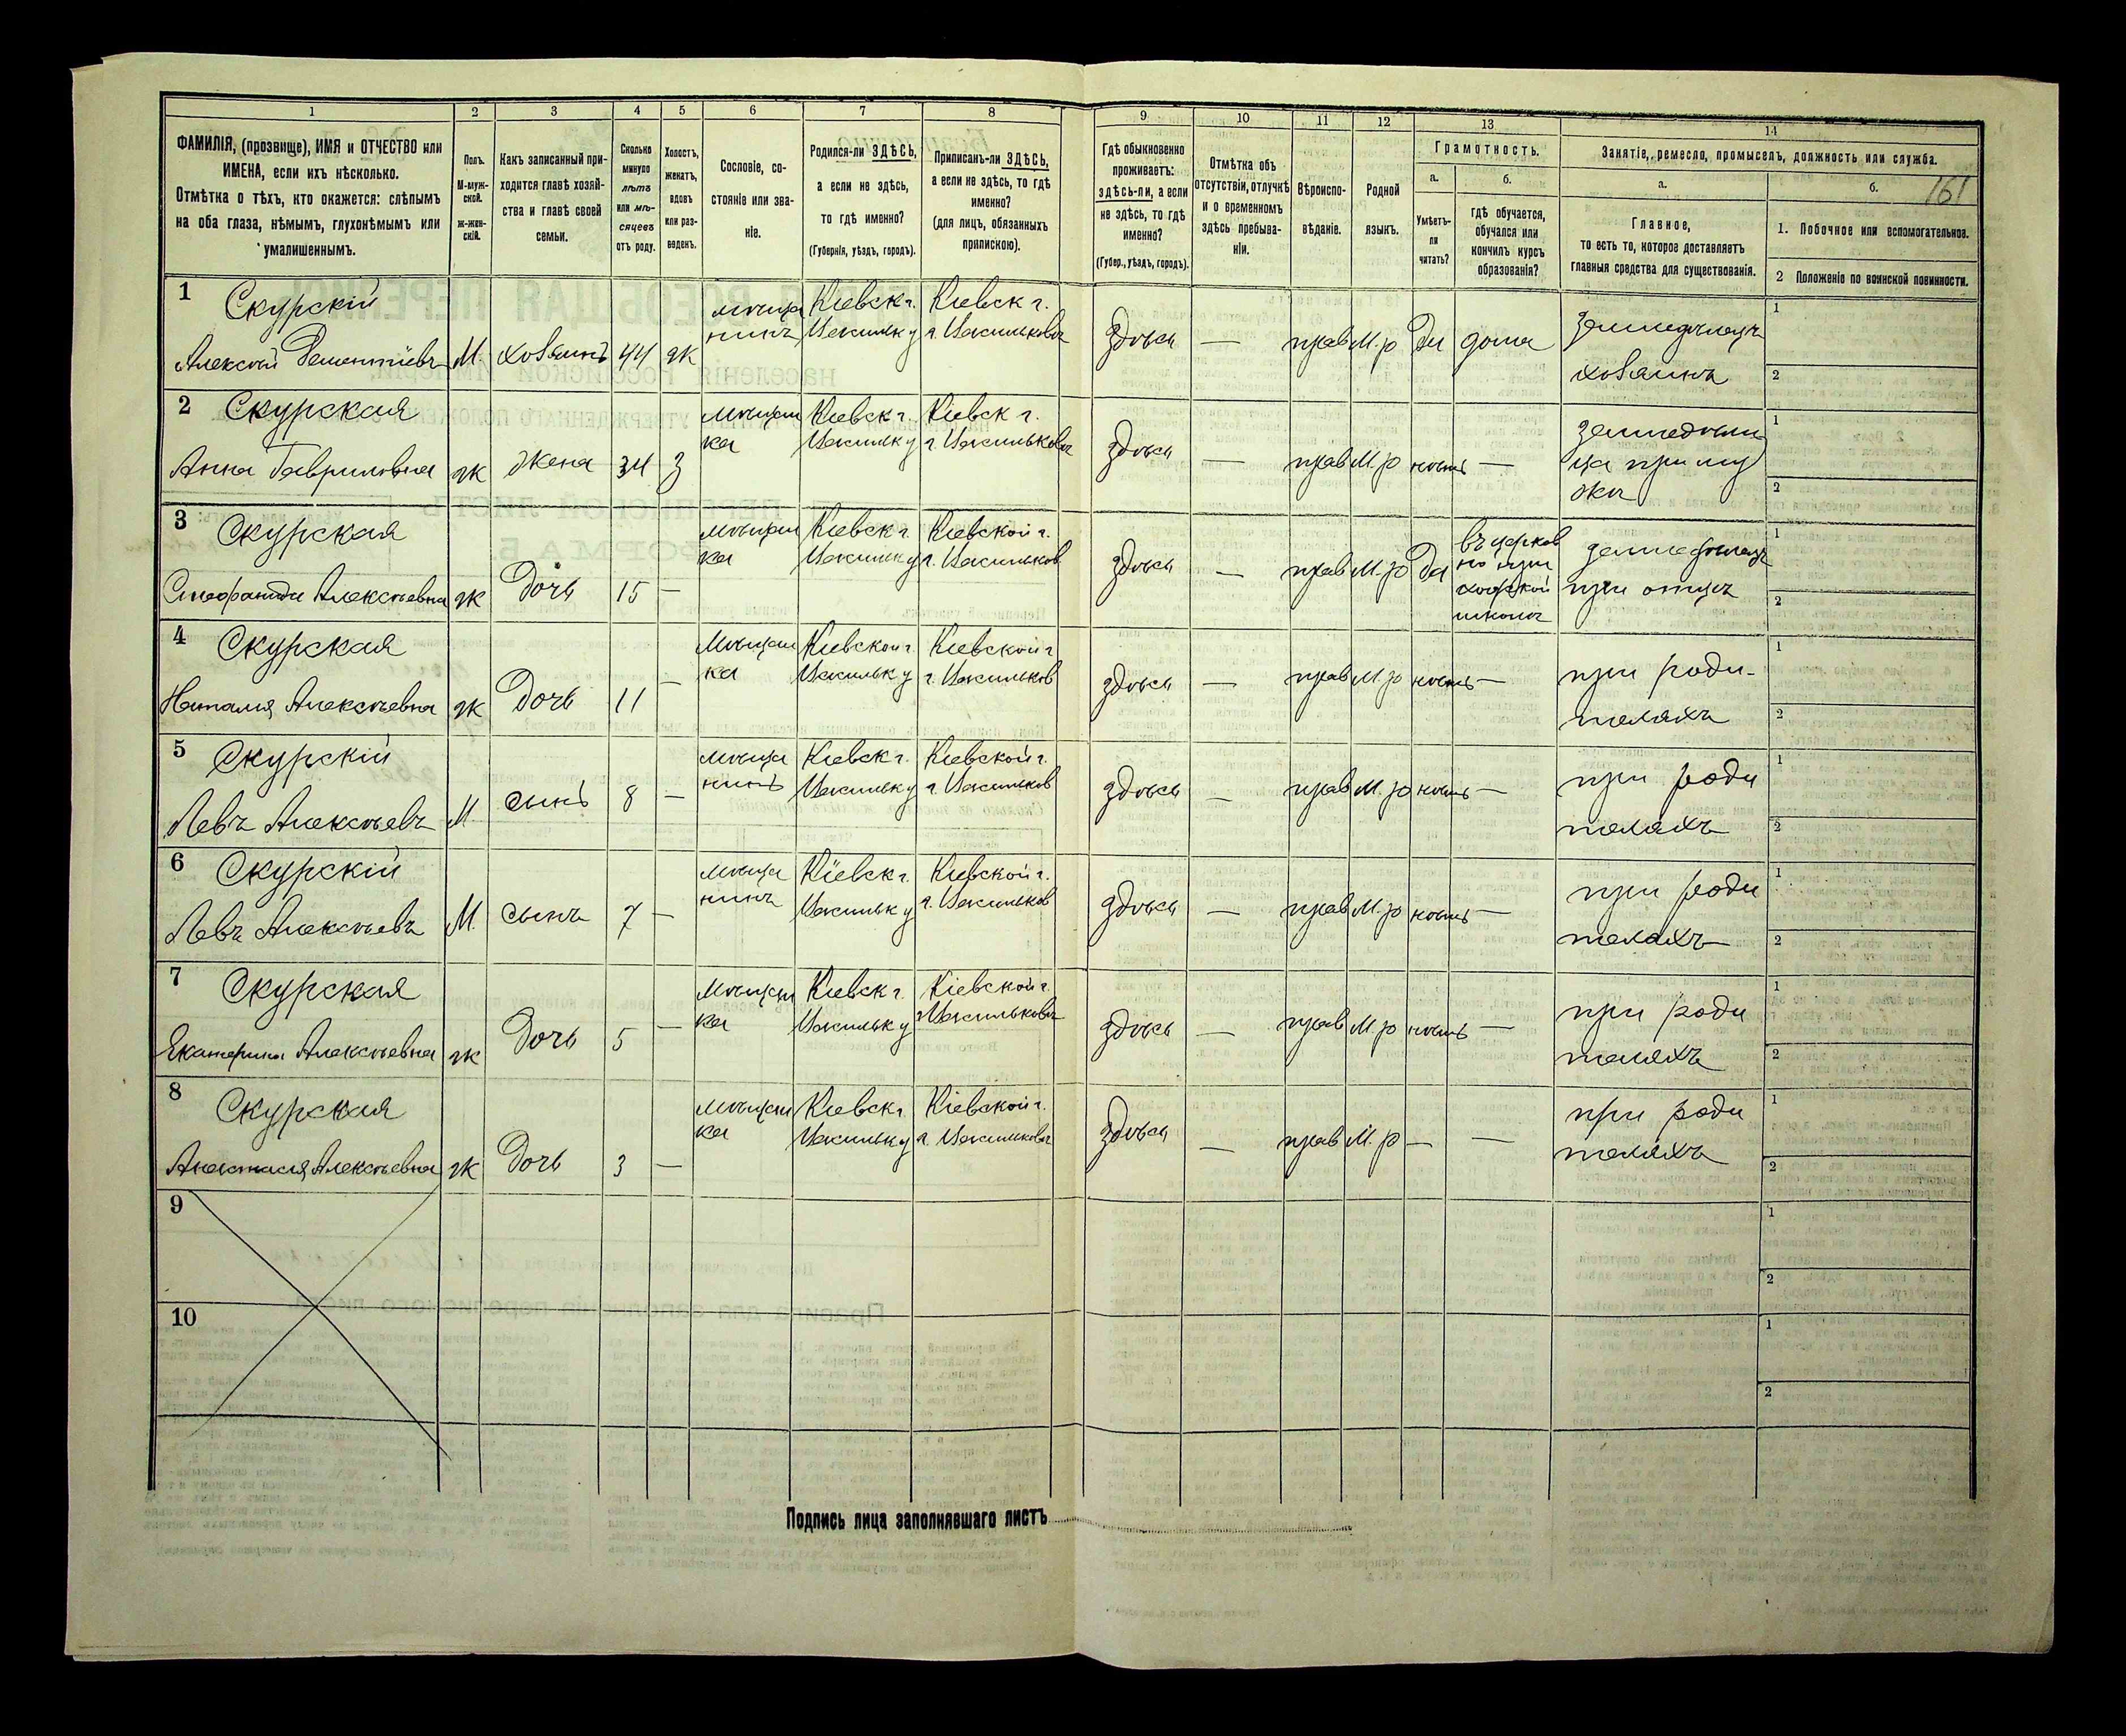 1 2 3 4 5 6 7 8 9 10 11 12 13 14
ФАМИЛІЯ, (прозвище), ИМЯ и ОТЧЕСТВО или
ИМЕНА, если ихъ нѣсколько.
Отмѣтка о тѣхъ, кто окажется: слѣпымъ
на оба глаза, нѣмымъ, глухонѣмымъ или
умалишеннымъ.
Полъ.
М-муж-
ской.
Ж-жен-
скій.
Какъ записанный при-
ходится главѣ хозяй-
ства и главѣ своей
семьи.
Сколько
минуло
лѣтъ
или мѣ-
сяцевъ
отъ роду.
Холостъ,
женатъ,
вдовъ
или раз-
веденъ.
Сословіе, со-
стояніе или зва-
ніе.
Родился-ли ЗДѢСЬ,
а если не здѣсь,
то гдѣ именно?
(Губернія, уѣздъ, городъ).
Приписанъ-ли ЗДѢСЬ,
а если не здѣсь, то гдѣ
именно?
(для лицъ, обязанныхъ
припискою).
Гдѣ обыкновенно
проживаетъ:
здѣсь-ли, а если
не здѣсь, то гдѣ
именно?
(Губер., уѣздъ, городъ).
Отмѣтка объ
отсутствіи, отлучкѣ
и о временномъ
здѣсь пребыва-
ніи.
Вѣроиспо-
вѣданіе.
Родной
языкъ.
Грамотность.
а.
Умѣетъ-
ли
читать?
б.
Гдѣ обучается,
обучался или
кончилъ курсъ
образованія?
Занятіе, ремесло, промыселъ, должность или служба.
а.
Главное,
то есть то, которое доставляетъ
главныя средства для существованія.
б.
161
1. Побочное или вспомогательное.
2 Положеніе по воинской повинности.
1 Скурскій
Алексѣй Дементіевъ М. хозяинъ 44 ж
мѣща
нинъ
Кіевск г.
Васильк у
Кіевск г.
г. Васильковъ
здѣсь — прав М.р Да дома
земледѣлецъ
хозяинъ
1
2
2 Скурская
Анна Гавриловна ж жена 34 з
мѣщан
ка
Кіевск г.
Васильк у
Кіевск г.
г. Васильковъ
здѣсь — прав М.р нѣтъ —
земледѣли
ца при му
жѣ
1
2
3 Скурская
Стефанида Алексѣевна ж Дочь 15 —
мѣщан
ка
Кіевск г.
Васильк у
Кіевской г.
г. Васильков
здѣсь — прав М.р Да
въ церков
но при
ходской
школѣ
земледѣлецъ
при отцѣ
1
2
4 Скурская
Наталія Алексѣевна ж Дочь 11 —
мѣщан
ка
Кіевской г.
Васильк у
Кіевской г
г. Васильков
здѣсь — прав М.р нѣтъ —
при роди-
теляхъ
1
2
5 Скурскій
Левъ Алексѣевъ М. сынъ 8 —
мѣща
нинъ
Кіевск г.
Васильк у
Кіевской г.
г. Васильков
здѣсь — прав М.р нѣтъ —
при роди
теляхъ
1
2
6 Скурскій
Левъ Алексѣевъ М. сынъ 7 —
мѣща
нинъ
Кіевск г.
Васильк у
Кіевской г.
г. Васильков
здѣсь — прав М.р нѣтъ —
при роди
теляхъ
1
2
7 Скурская
Екатерина Алексѣевна ж Дочь 5 —
мѣщан
ка
Кіевск г.
Васильк у
Кіевской г.
г Васильковъ
здѣсь — прав М.р нѣтъ —
при роди
теляхъ
1
2
8 Скурская
Анастасія Алексѣевна ж Дочь 3 —
мѣщан
ка
Кіевск г.
Васильк у
Кіевской г.
г. Васильковъ
здѣсь — прав М.р — —
при роди
теляхъ
1
2
9
1
2
10
1
2
Подпись лица заполнявшаго листъ